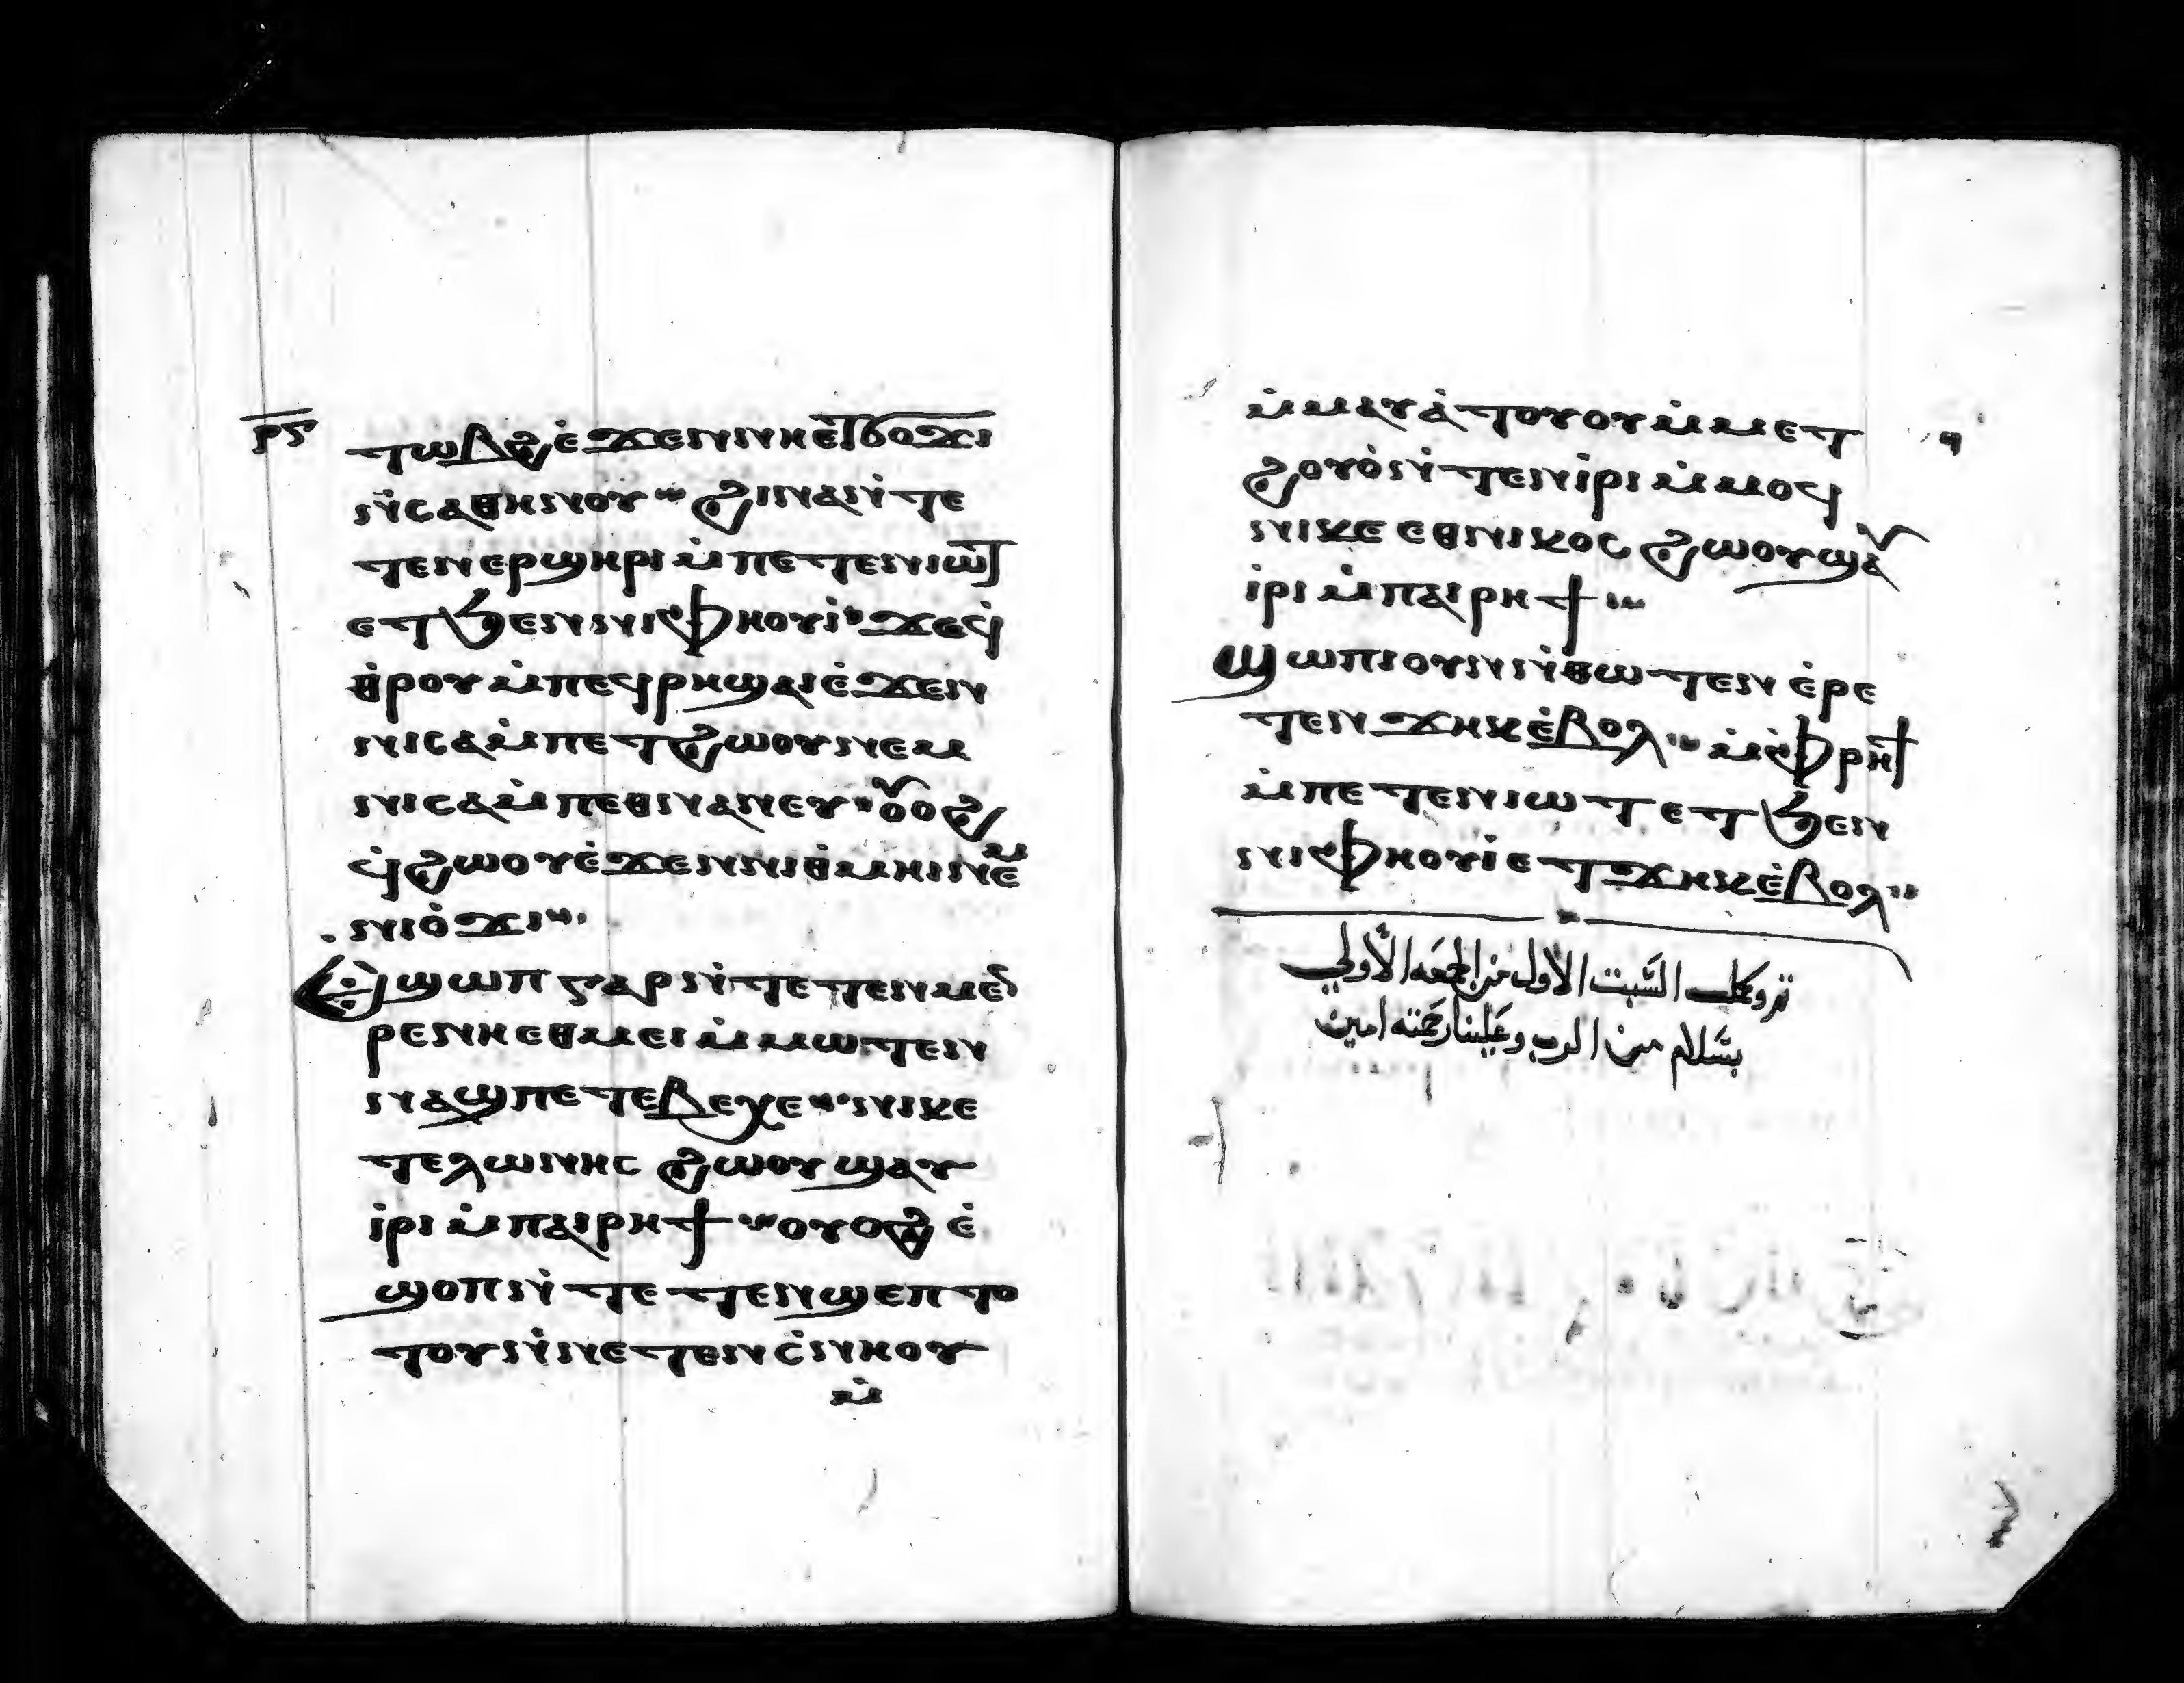 ⲣ̅ⲋ̅
ⲧⲱⲃϩ ⲉ̇ϫⲉⲛ ⲛⲏ ⲉⲧϭⲟϫⲓ
ⲛ̇ⲥⲁⲑⲏⲛⲟⲩ ϩⲓⲛⲁ ⲛ̇ⲧⲉ
ⲧⲉⲛⲉⲣϣⲏⲣⲓ ⲙ̇ⲡⲉⲧⲉⲛⲓⲱⲧ
ⲉⲧϧⲉⲛ ⲛⲓⲫⲏⲟⲩⲓ̇ ϫⲉϥ̇
ⲑ̇ⲣⲟⲩ ⲙ̇ⲡⲉϥⲣⲏ ϣⲁⲓ ⲉ̇ϫⲉⲛ
ⲛⲓⲥⲁⲙ̇ⲡⲉⲧϩⲱⲟⲩ ⲛⲉⲙ
ⲛⲓⲥⲁⲙ̇ⲡⲉⲑⲛⲁⲛⲉⲩ ⲟⲩⲟϩ
ϥ̇ϩⲱⲟⲩ ⲉ̇ϫⲉⲛ ⲛⲓⲑ̇ⲙⲏⲓ ⲛⲉⲙ
ⲛⲓⲟ̇ϫⲓ
ⲉϣⲱⲡ ⲅⲁⲣ ⲛ̇ⲧⲉⲧⲉⲛⲙⲉⲛ
ⲣⲉ ⲛⲏ ⲉⲑⲙⲉⲓ ⲙ̇ⲙⲱⲧⲉⲛ
ⲛⲁϣ ⲡⲉ ⲧⲉⲃⲉⲭⲉ ⲛⲓⲕⲉ
ⲧⲉⲗⲱⲛⲏⲥ ϩⲱⲟⲩ ϣⲁⲩ
ⲓ̇ⲣⲓ ⲙ̇ⲡⲁⲓⲣⲏϯ ⲟⲩⲟϩ ⲉ̇
ϣⲟⲡ ⲛ̇ⲧⲉⲧⲉⲛϣⲉⲡ ⲧⲟ
ⲧⲟⲩ ⲛ̇ⲛⲉⲧⲉⲛⲥ̇ⲛⲏⲟⲩ
ⲙ̇
ⲙ̇ⲙⲁⲩⲁ̇ⲧⲟⲩ ⲟⲩ ⲙ̇ⲙⲉⲧ
ϩⲟⲩⲟ̇ ⲛ̇ⲧⲉⲛⲓ̇ⲣⲓ ⲙ̇ⲙⲟϥ
ⲛⲓⲕⲉ ⲉⲑⲛⲓⲕⲟⲥ ϩⲱⲟⲩ ϣⲁⲩ
ⲓ̇ⲣⲓ ⲙ̇ⲡⲁⲓⲣⲏϯ
ϣⲱⲡⲓ ⲟⲩⲛ ⲛ̇ⲑⲱⲧⲉⲛ ⲉ̇ⲣⲉ
ⲧⲉⲛϫⲏⲕ ⲉ̇ⲃⲟⲗ ⲙ̇ⲫ̇ⲣⲏϯ
ⲙ̇ⲡⲉⲧⲉⲛⲓⲱⲧ ⲉⲧϧⲉⲛ
ⲛⲓⲫⲏⲟⲩⲓ̇ ⲉⲧϫⲏⲕ ⲉ̇ⲃⲟⲗ
تم وكمل السَّبت الأول من الجمعَه الأولي
بسَّلام من الرب وعَلينا رحمَته امين